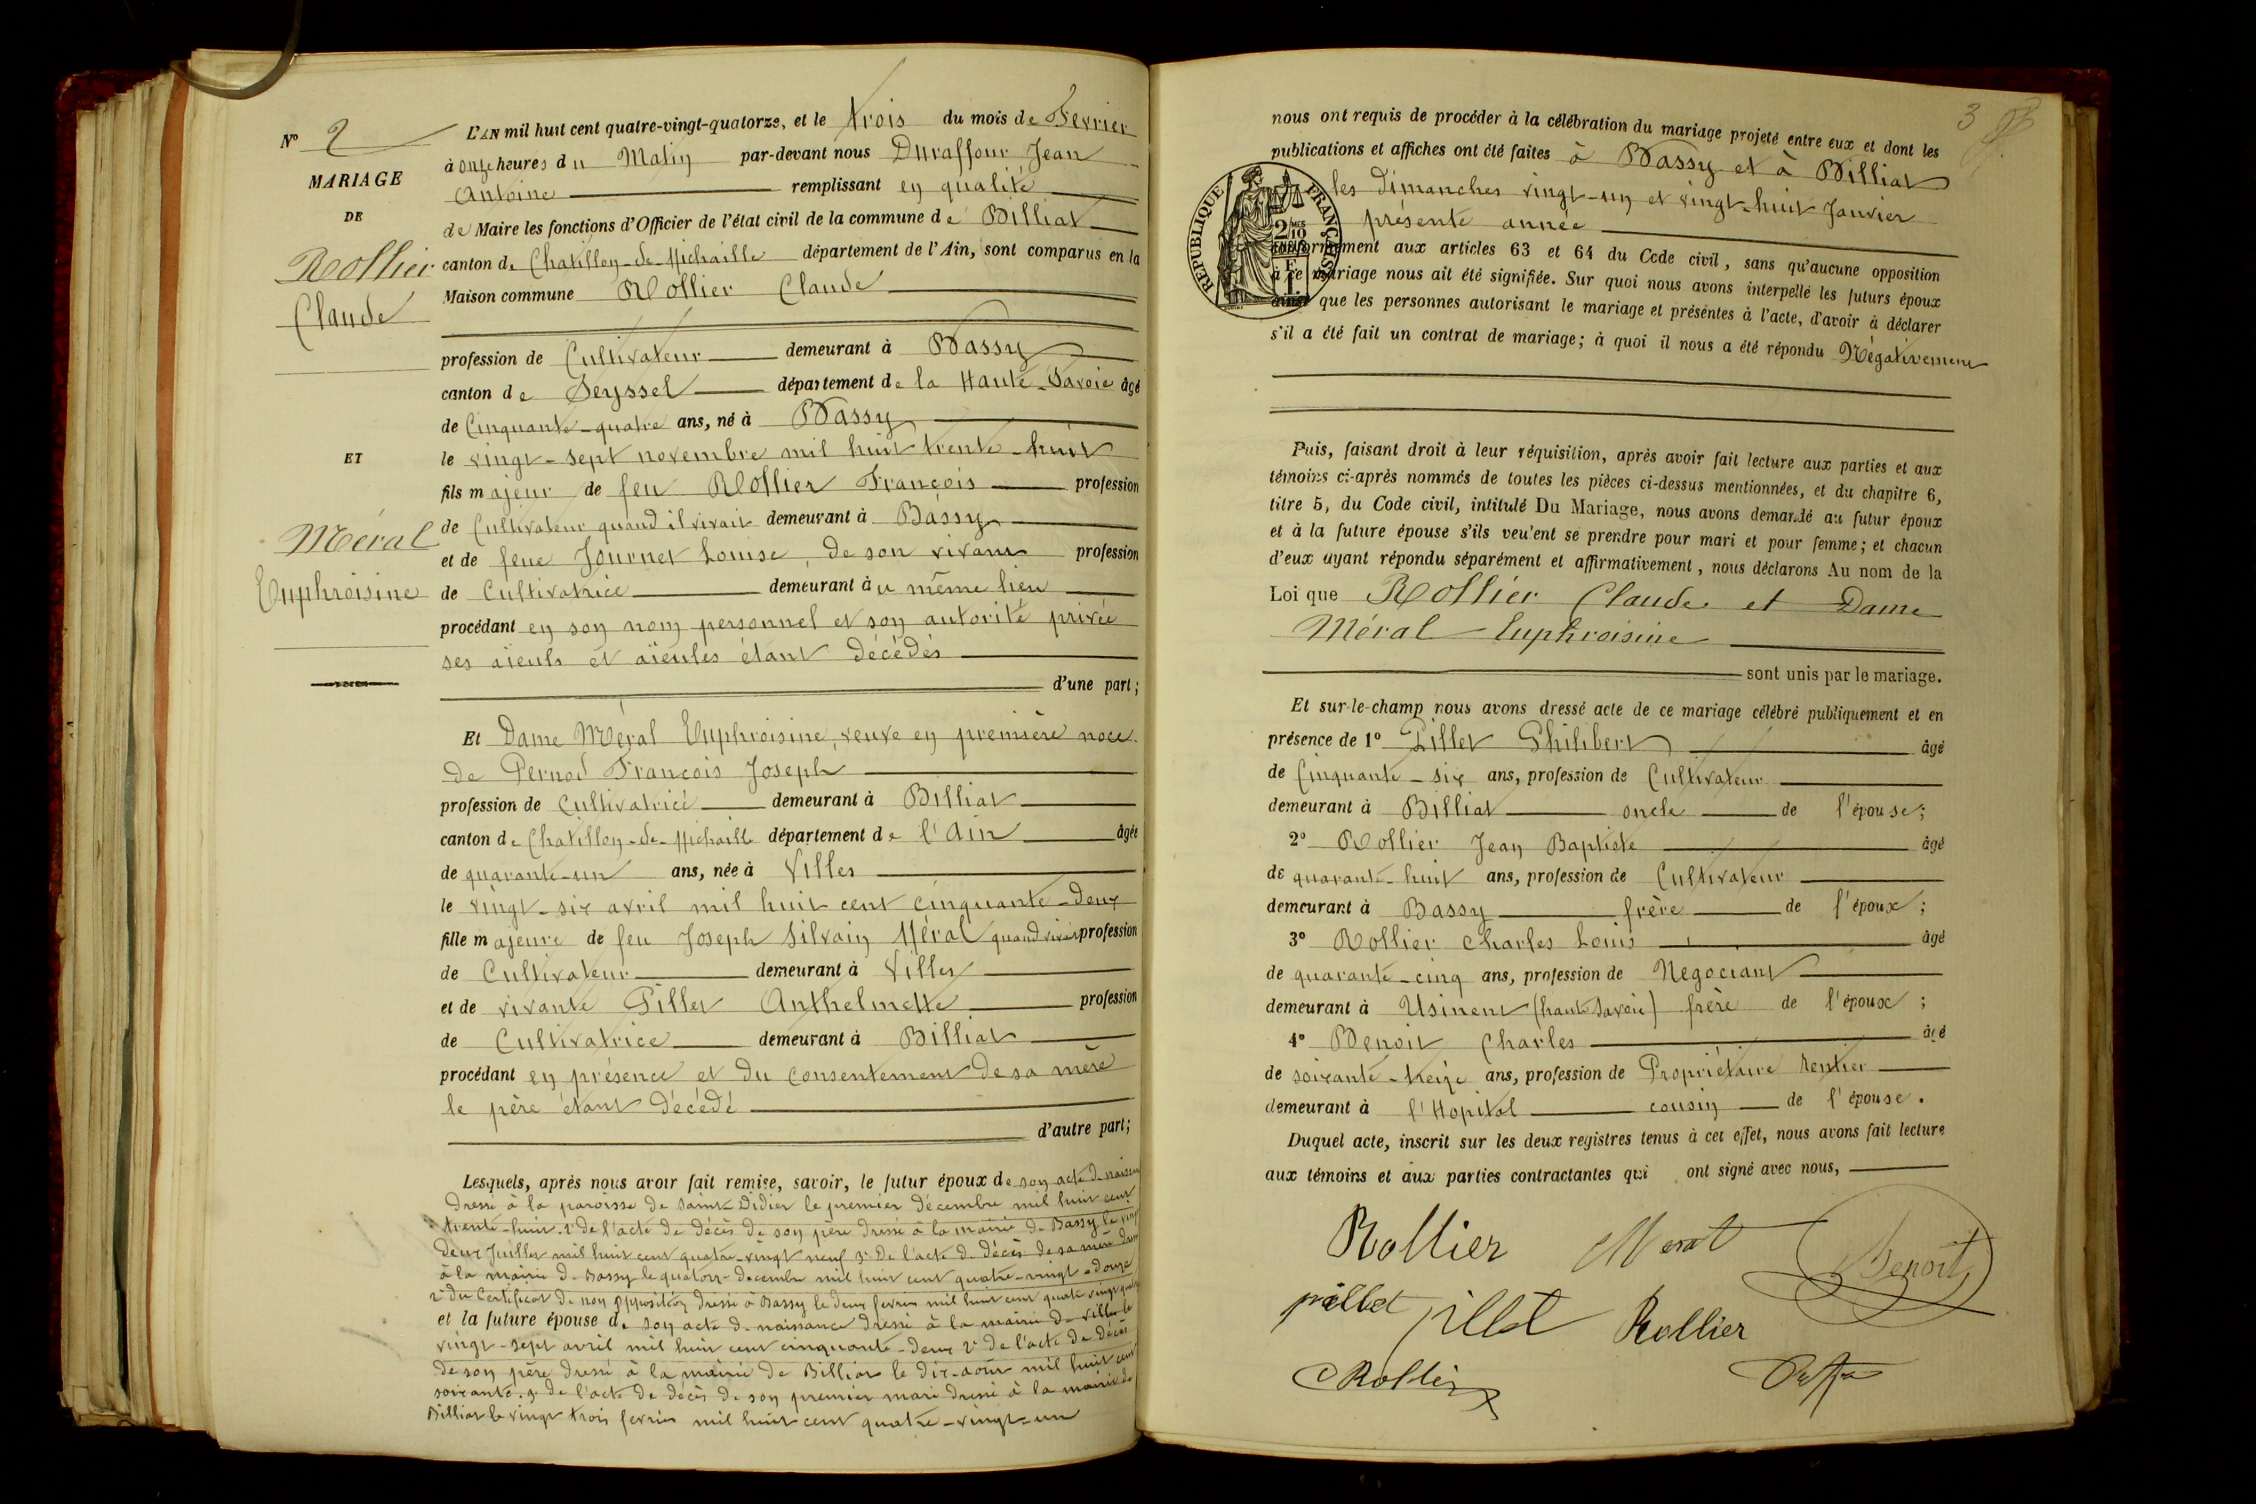 N° 2
MARIAGE
DE
Rollier
Claude
ET
Méral
Euphroisine
L'AN mil huit cent quatre-vingt-quatorze, et le trois du mois de Fevrier
à onze heures du Matin par-devant nous Duraffour Jean
Antoine remplissant en qualité
de Maire les fonctions d'Officier de l'état civil de la commune de Billiat
canton de Chatillon-de-Michaille département de l'Ain, sont comparus en la
Maison commune Rollier Claude
profession de Cultivateur demeurant à Bassy
canton de Seyssel département de la Haute-Savoie âgé
de Cinquante-quatre ans, né à Bassy
le vingt-sept novembre mil huit trente-huit
fils majeur de feu Rollier François profession
de Cultivateur quand il vivait demeurant à Bassy
et de feue Journet Louise, de son vivant profession
de Cultivatrice demeurant au même lieu
procédant en son nom personnel et son autorité privée
ses aïeuls et aïeules étant décédés
d'une part;
Et Dame Méral Euphroisine, veuve en première noce
de Pernod François Joseph
profession de Cultivatrice demeurant à Billiat
canton de Chatillon-de-Michaille département de l'Ain âgée
de quarante-un ans, née à Villes
le vingt-six avril mil huit cent cinquante-deux
fille majeure de feu Joseph Silvain Méral quand vivait profession
de Cultivateur demeurant à Villes
et de vivante Pillet Anthelmette profession
de Cultivatrice demeurant à Billiat
procédant en présence et du consentement de sa mère
le père étant décédé
d'autre part;
Lesquels, après nous avoir fait remise, savoir, le futur époux de son acte de naissance
dressé à la paroisse de Saint Didier le premier décembre mil huit cent
trente-huit. 2° de l'acte de décès de son père dressé à la mairie de Bassy le vingt
deux Juillet mil huit cent quatre-vingt neuf 3° De l'acte de décès de sa mère
à la mairie de Bassy le quatorze decembre mil huit cent quatre-vingt-douze
du Certificat de non opposition dressé à Bassy le deux fevrier mil huit cent quatre vingt
et la future épouse de son acte de naissance dressé à la mairie de Villes le
vingt-sept avril mil huit cent cinquante-deux 2° de l'acte de décès
de son père dressé à la mairie de Billiat le dix-août mil huit cent
soixante. 3° de l'acte de décès de son premier mari dressé à la mairie de
Billiat le vingt trois fevrier mil huit cent quatre-vingt-un
3
nous ont requis de procéder à la célébration du mariage projeté entre eux et dont les
publications et affiches ont été faites à Bassy et à Billiat
les dimanches vingt-un et vingt-huit Janvier
présente année
conformément aux articles 63 et 64 du Code civil, sans qu'aucune opposition
à ce mariage nous ait été signifiée. Sur quoi nous avons interpellé les futurs époux
ainsi que les personnes autorisant le mariage et présentes à l'acte, d'avoir à déclarer
s'il a été fait un contrat de mariage; à quoi il nous a été répondu Négativement
RÉPUBLIQUE FRANÇAISE
2/10
Puis, faisant droit à leur réquisition, après avoir fait lecture aux parties et aux
témoins ci-après nommés de toutes les pièces ci-dessus mentionnées, et du chapitre 6,
titre 5, du Code civil, intitulé Du Mariage, nous avons demandé au futur époux
et à la future épouse s'ils veulent se prendre pour mari et pour femme; et chacun
d'eux ayant répondu séparément et affirmativement, nous déclarons Au nom de la
Loi que Rollier Claude et Dame
Méral Euphroisine
sont unis par le mariage.
Et sur-le-champ nous avons dressé acte de ce mariage célébré publiquement et en
présence de 1° Pillet Philibert âgé
de Cinquante-six ans, profession de Cultivateur
demeurant à Billiat oncle de l'épouse;
2° Rollier Jean Baptiste âgé
de quarante-huit ans, profession de Cultivateur
demeurant à Bassy frère de l'époux;
3° Rollier Charles Louis âgé
de quarante-cinq ans, profession de Négociant
demeurant à Usinens (haute Savoie) frère de l'époux;
4° Benoit Charles âgé
de soixante-treize ans, profession de Propriétaire rentier
demeurant à l'Hopital cousin de l'épouse.
Duquel acte, inscrit sur les deux registres tenus à cet effet, nous avons fait lecture
aux témoins et aux parties contractantes qui ont signé avec nous,
Rollier Meral Benoit
pillet pillet Rollier
C Rollier